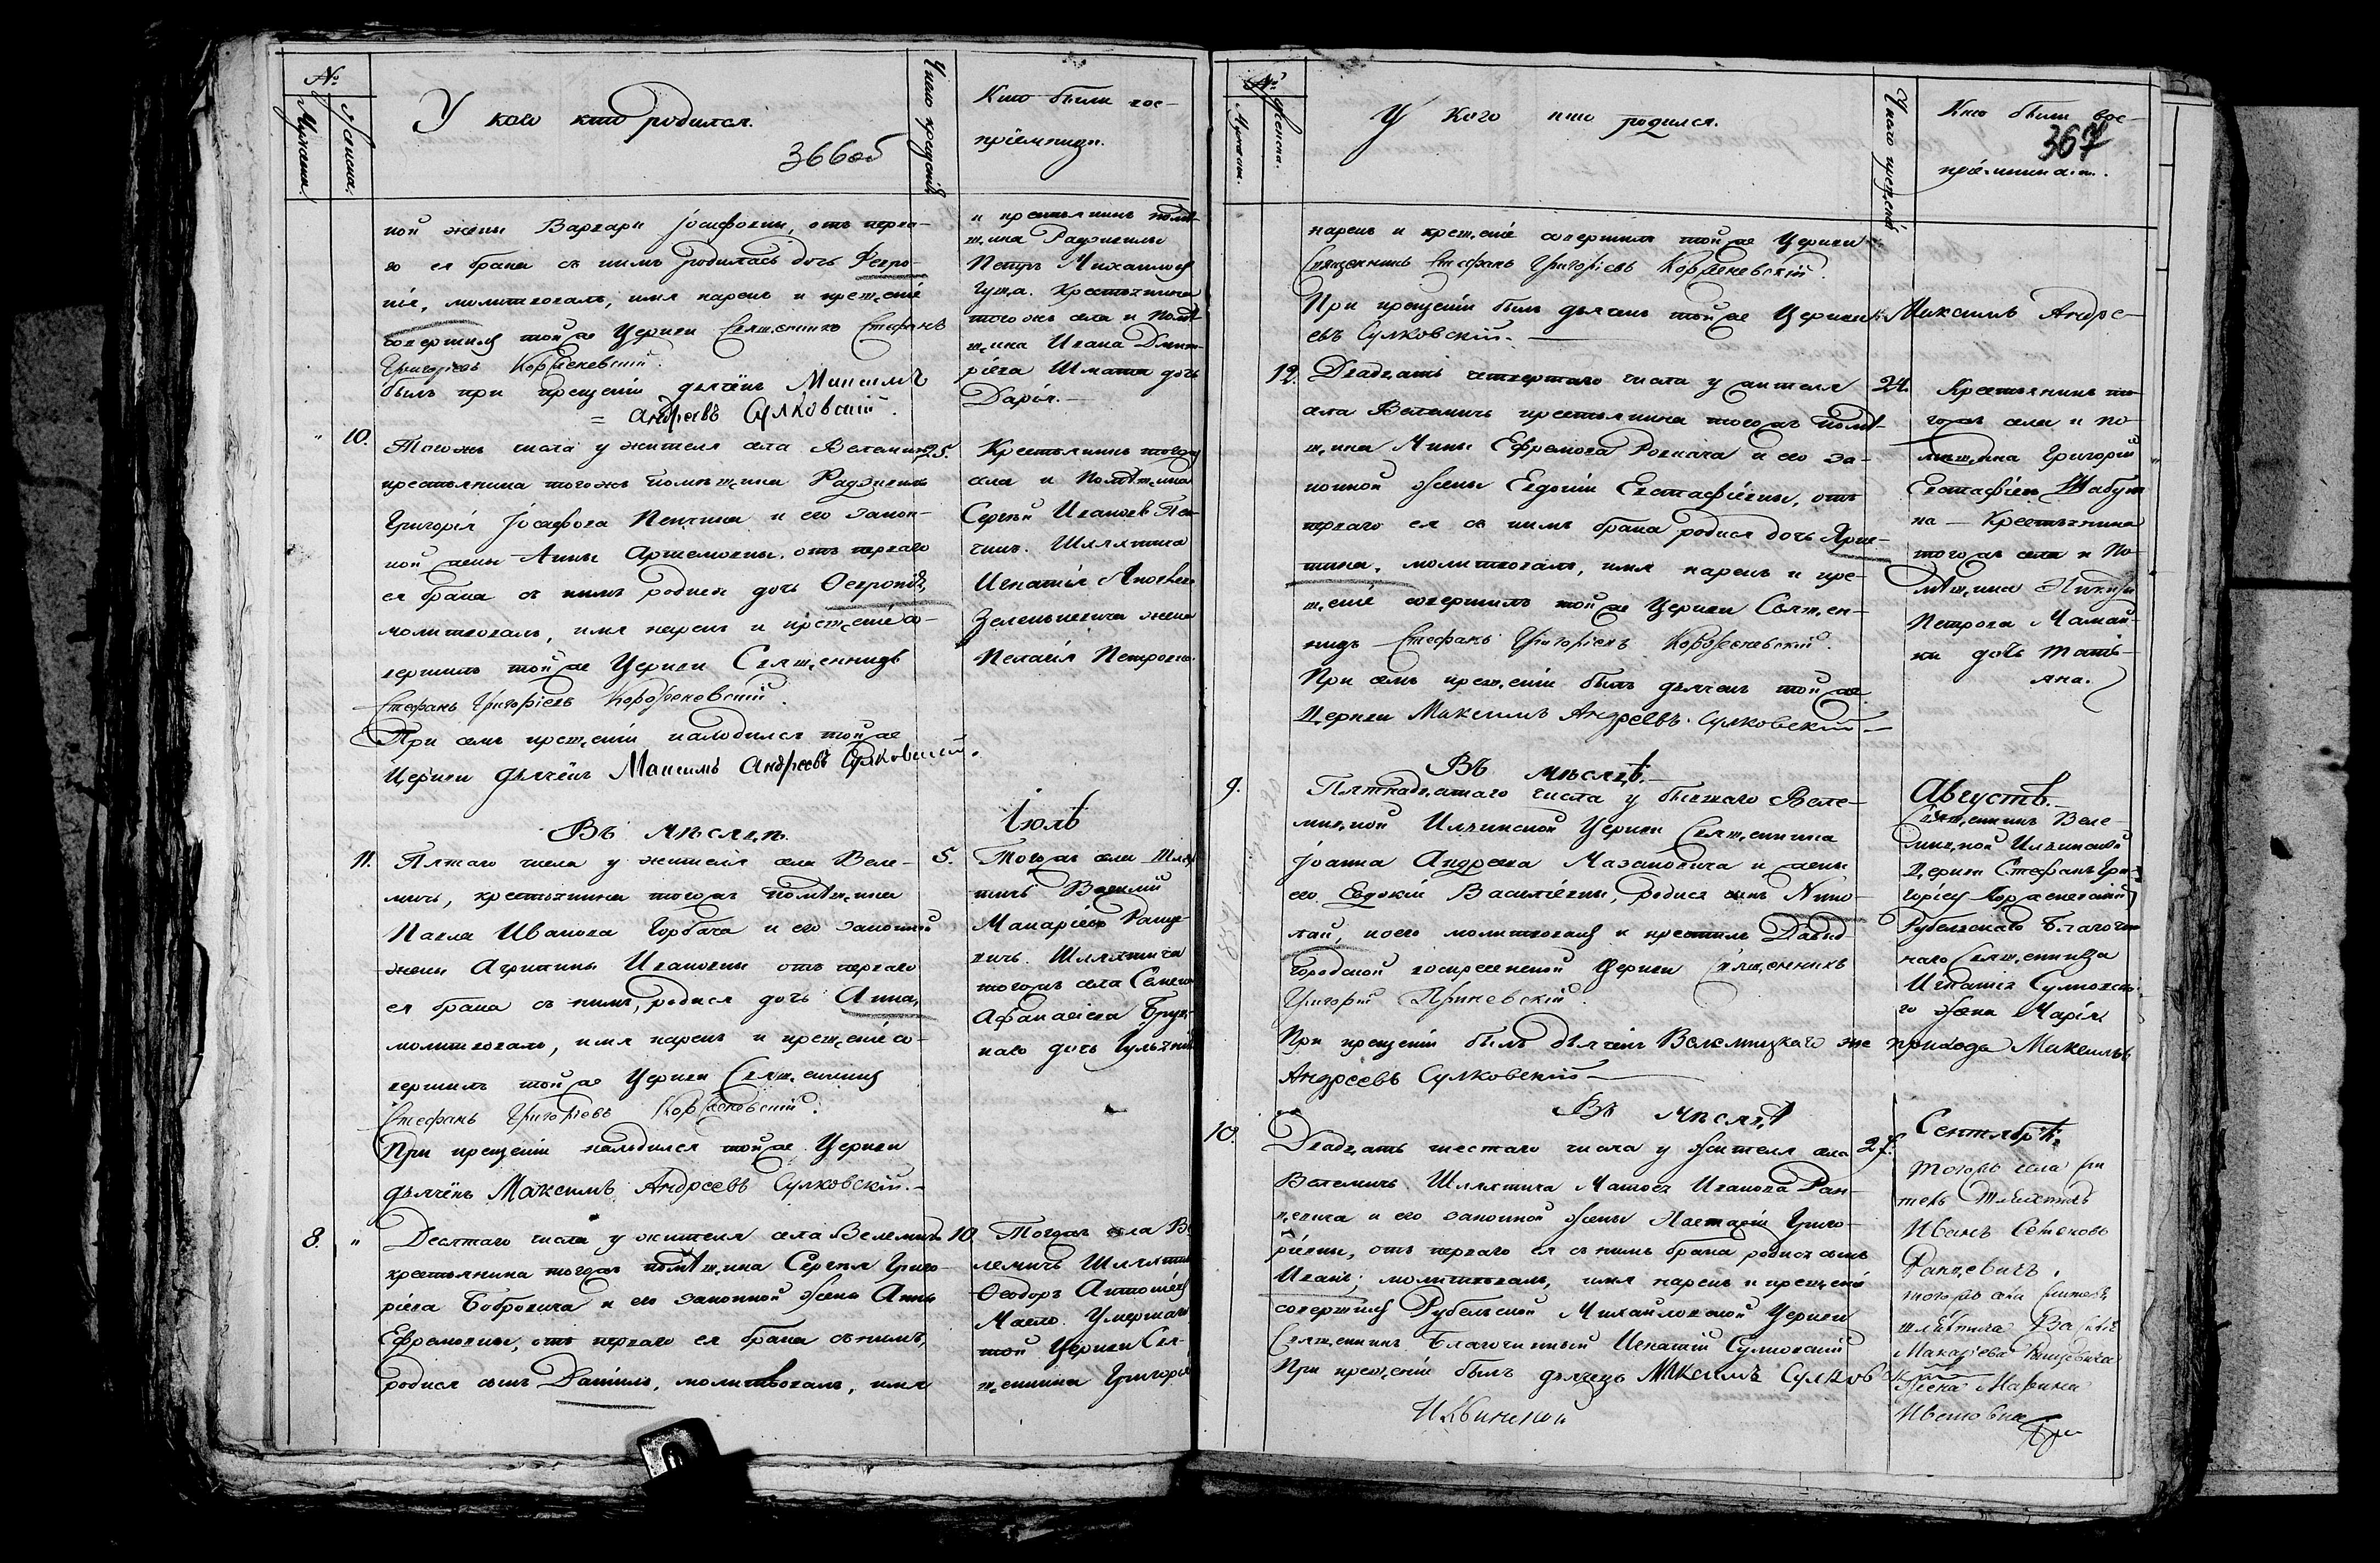 №
Мужеска.
Женска.
У кого кто родился.
366об
Число крещенія
Кто были вос-
пріемницы.
ной жены Варвары Іосифовны, отъ перва-
го ея брака съ нимъ родилась дочь Февро-
нія, молитвовалъ, имя нарекъ и крещеніе
совершилъ той же Церкви Священникъ Стефанъ
Григоріевъ Корженевскій.
былъ при крещеніи дьячёкъ Максимъ
= Андреевъ Сулковскій.
и крестьянинъ помѣ-
щика
Петръ Михайловъ
Гуща. Крестьянина
тогожъ села и помѣ-
щика Ивана Дмит-
ріева Шмата дочь
Дарія.
" 10.
Тогожъ числа у жителя села Велемичъ 25.
крестьянина тогожъ помѣщика
Григорія Іосифова Пенчина и его закон-
ной жены Анны Артемовны, отъ перваго
ея брака съ нимъ родися дочь Февронія,
молитвовалъ, имя нарекъ и крещеніе со-
вершилъ той же Церкви Священникъ
Стефанъ Григоріевъ Корженевскій.
При семъ крещеніи находился той же
Церкви дьячёкъ Максимъ Андреевъ Сулковскій.
Крестьянинъ тогожъ
села и помѣщика
Сергѣй Ивановъ Пен-
чинъ. Шляхтича
Игнатія
Зеленькевича жена
Пелагія Петровна.
Въ мѣсяцѣ
Іюлѣ
11. Пятаго числа у жителя села Веле-
мичъ, крестьянина тогожъ помѣщика
Павла Иванова Горбача и его законной
жены Агрипины Ивановны отъ перваго
ея брака съ нимъ, родися дочь Анна,
молитвовалъ, имя нарекъ и крещеніе со-
вершилъ той же Церкви Священникъ
Стефанъ Григоріевъ Корженовскій.
При крещеніи находился той же Церкви
дьячёкъ Максимъ Андреевъ Сулковскій.
5. Тогожъ села Шлях-
тичъ Василій
Макаріевъ Ранце-
вичъ. Шляхтича
тогожъ села Семена
Афанасіева
наго дочь
8. " Десятаго числа у жителя села Велемичъ 10.
крестьянина тогожъ помѣщика Сергѣя Григо-
ріева Бобровича и его законной жены Анны
Ефремовны, отъ перваго ея брака съ нимъ,
родися сынъ Даніилъ, молитвовалъ, имя
Тогожъ села Ве-
лемичъ Шляхтичъ
Ѳеодоръ
Умершаго
той Церкви Свя-
щенника Григорія
№
Мужеска.
Женска.
У кого кто родился.
Число крещеній
Кто были вос-
367
пріемниками.
нарекъ и крещеніе совершилъ той же Церкви
Священникъ Стефанъ Григоріевъ Корженевскій.
При крещеніи былъ дьячекъ той же Церкви Максимъ Андре-
евъ Сулковскій.
12. Двадцать четвертаго числа у жителя 24.
села Велемичъ крестьянина тогожъ помѣ-
щика Мины Ефремова Ровнача и его за-
конной жены Евдокіи Евстафіевны, отъ
перваго ея съ нимъ брака родися дочь Хрис-
тина, молитвовалъ, имя нарекъ и кре-
щеніе совершилъ той же Церкви Священ-
никъ Стефанъ Григоріевъ Корженевскій.
При семъ крещеніи былъ дьячекъ той же
Церкви Максимъ Андреевъ Сулковскій
Крестьянинъ то-
гожъ села и по-
мѣщика Григорій
Евстафіевъ
Крестьянина
тогожъ села и по-
мѣщика Никиты
Петрова
дочь Тать-
яна.
Въ мѣсяцѣ
Августѣ.
9. Пятнадцатаго числа у бывшаго Веле-
мицкой Ильинской Церкви Священника
Іоанна Андреева Мазановича и жены
его Евдокіи Василіевны, родися сынъ Нико-
лай, коего молитвовалъ и крестилъ Давид-
городской воскресенской Церкви Священникъ
Григорій
При крещеніи былъ дьячекъ Велемицкаго же прихода Максимъ
Андреевъ Сулковскій
Священникъ Веле-
мицкой Ильинской
Церкви Стефанъ Гри-
горіевъ Корженевскій
Рубельскаго Благочин-
наго Священника
Игнатія Сулковска-
го жена Марія.
Въ мѣсяцѣ
Сентябрѣ
10. Двадцать шестаго числа у жителя села 27.
Велемичъ Шляхтича Матвея Иванова Ран-
цевича и его законной жены Настасіи Григо-
ріевны, отъ перваго ея съ нимъ брака родися сынъ
Иванъ; молитвовалъ, имя нарекъ и крещеніе
совершилъ Рубельской Михайловской Церкви
Священникъ Благочинный Игнатій Сулковскій
При крещеніи былъ дьячекъ Максимъ Сулков
Тогожъ села жи-
тель шляхтичъ
Иванъ Семеновъ
Ранцевичъ.
тогожъ села жителя
шляхтича Василія
Макарьева Ранцевича
жена Марина